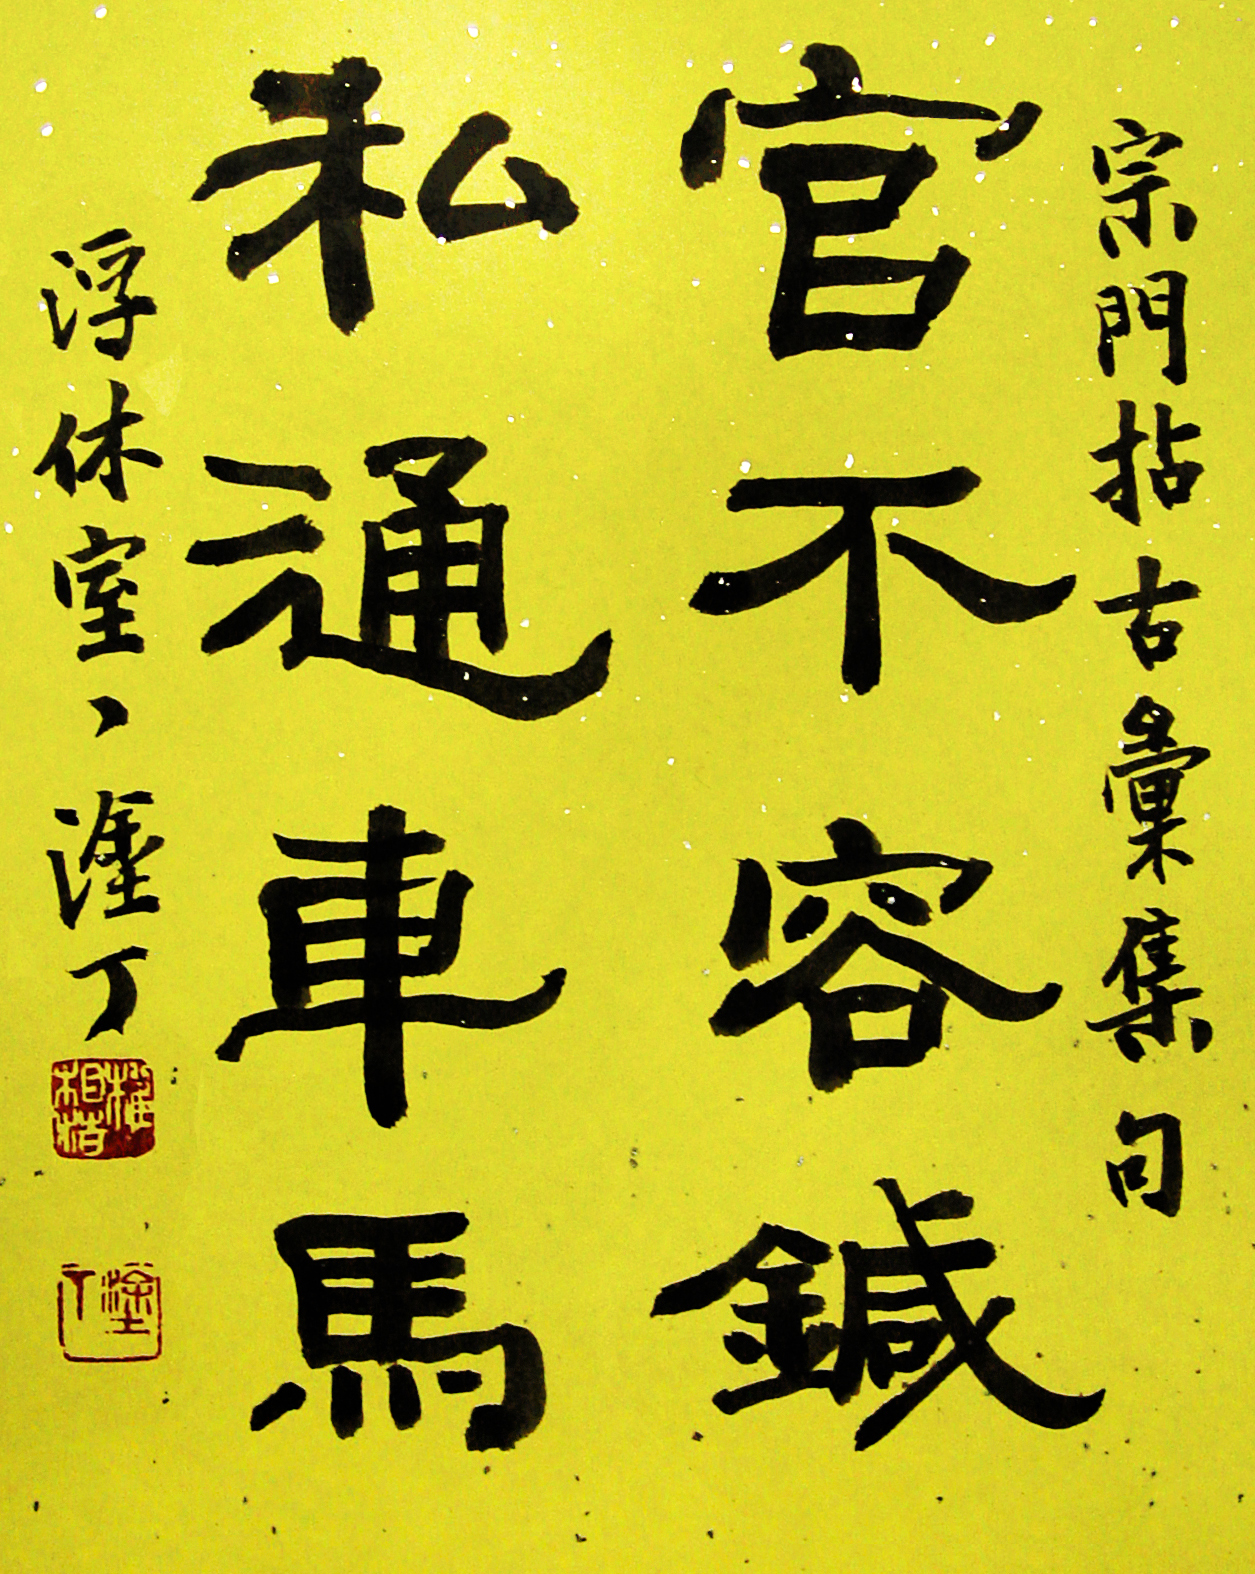 宗門拈古彙集句
官不容鍼
私通車馬
浮休室丶塗丁
塗丁